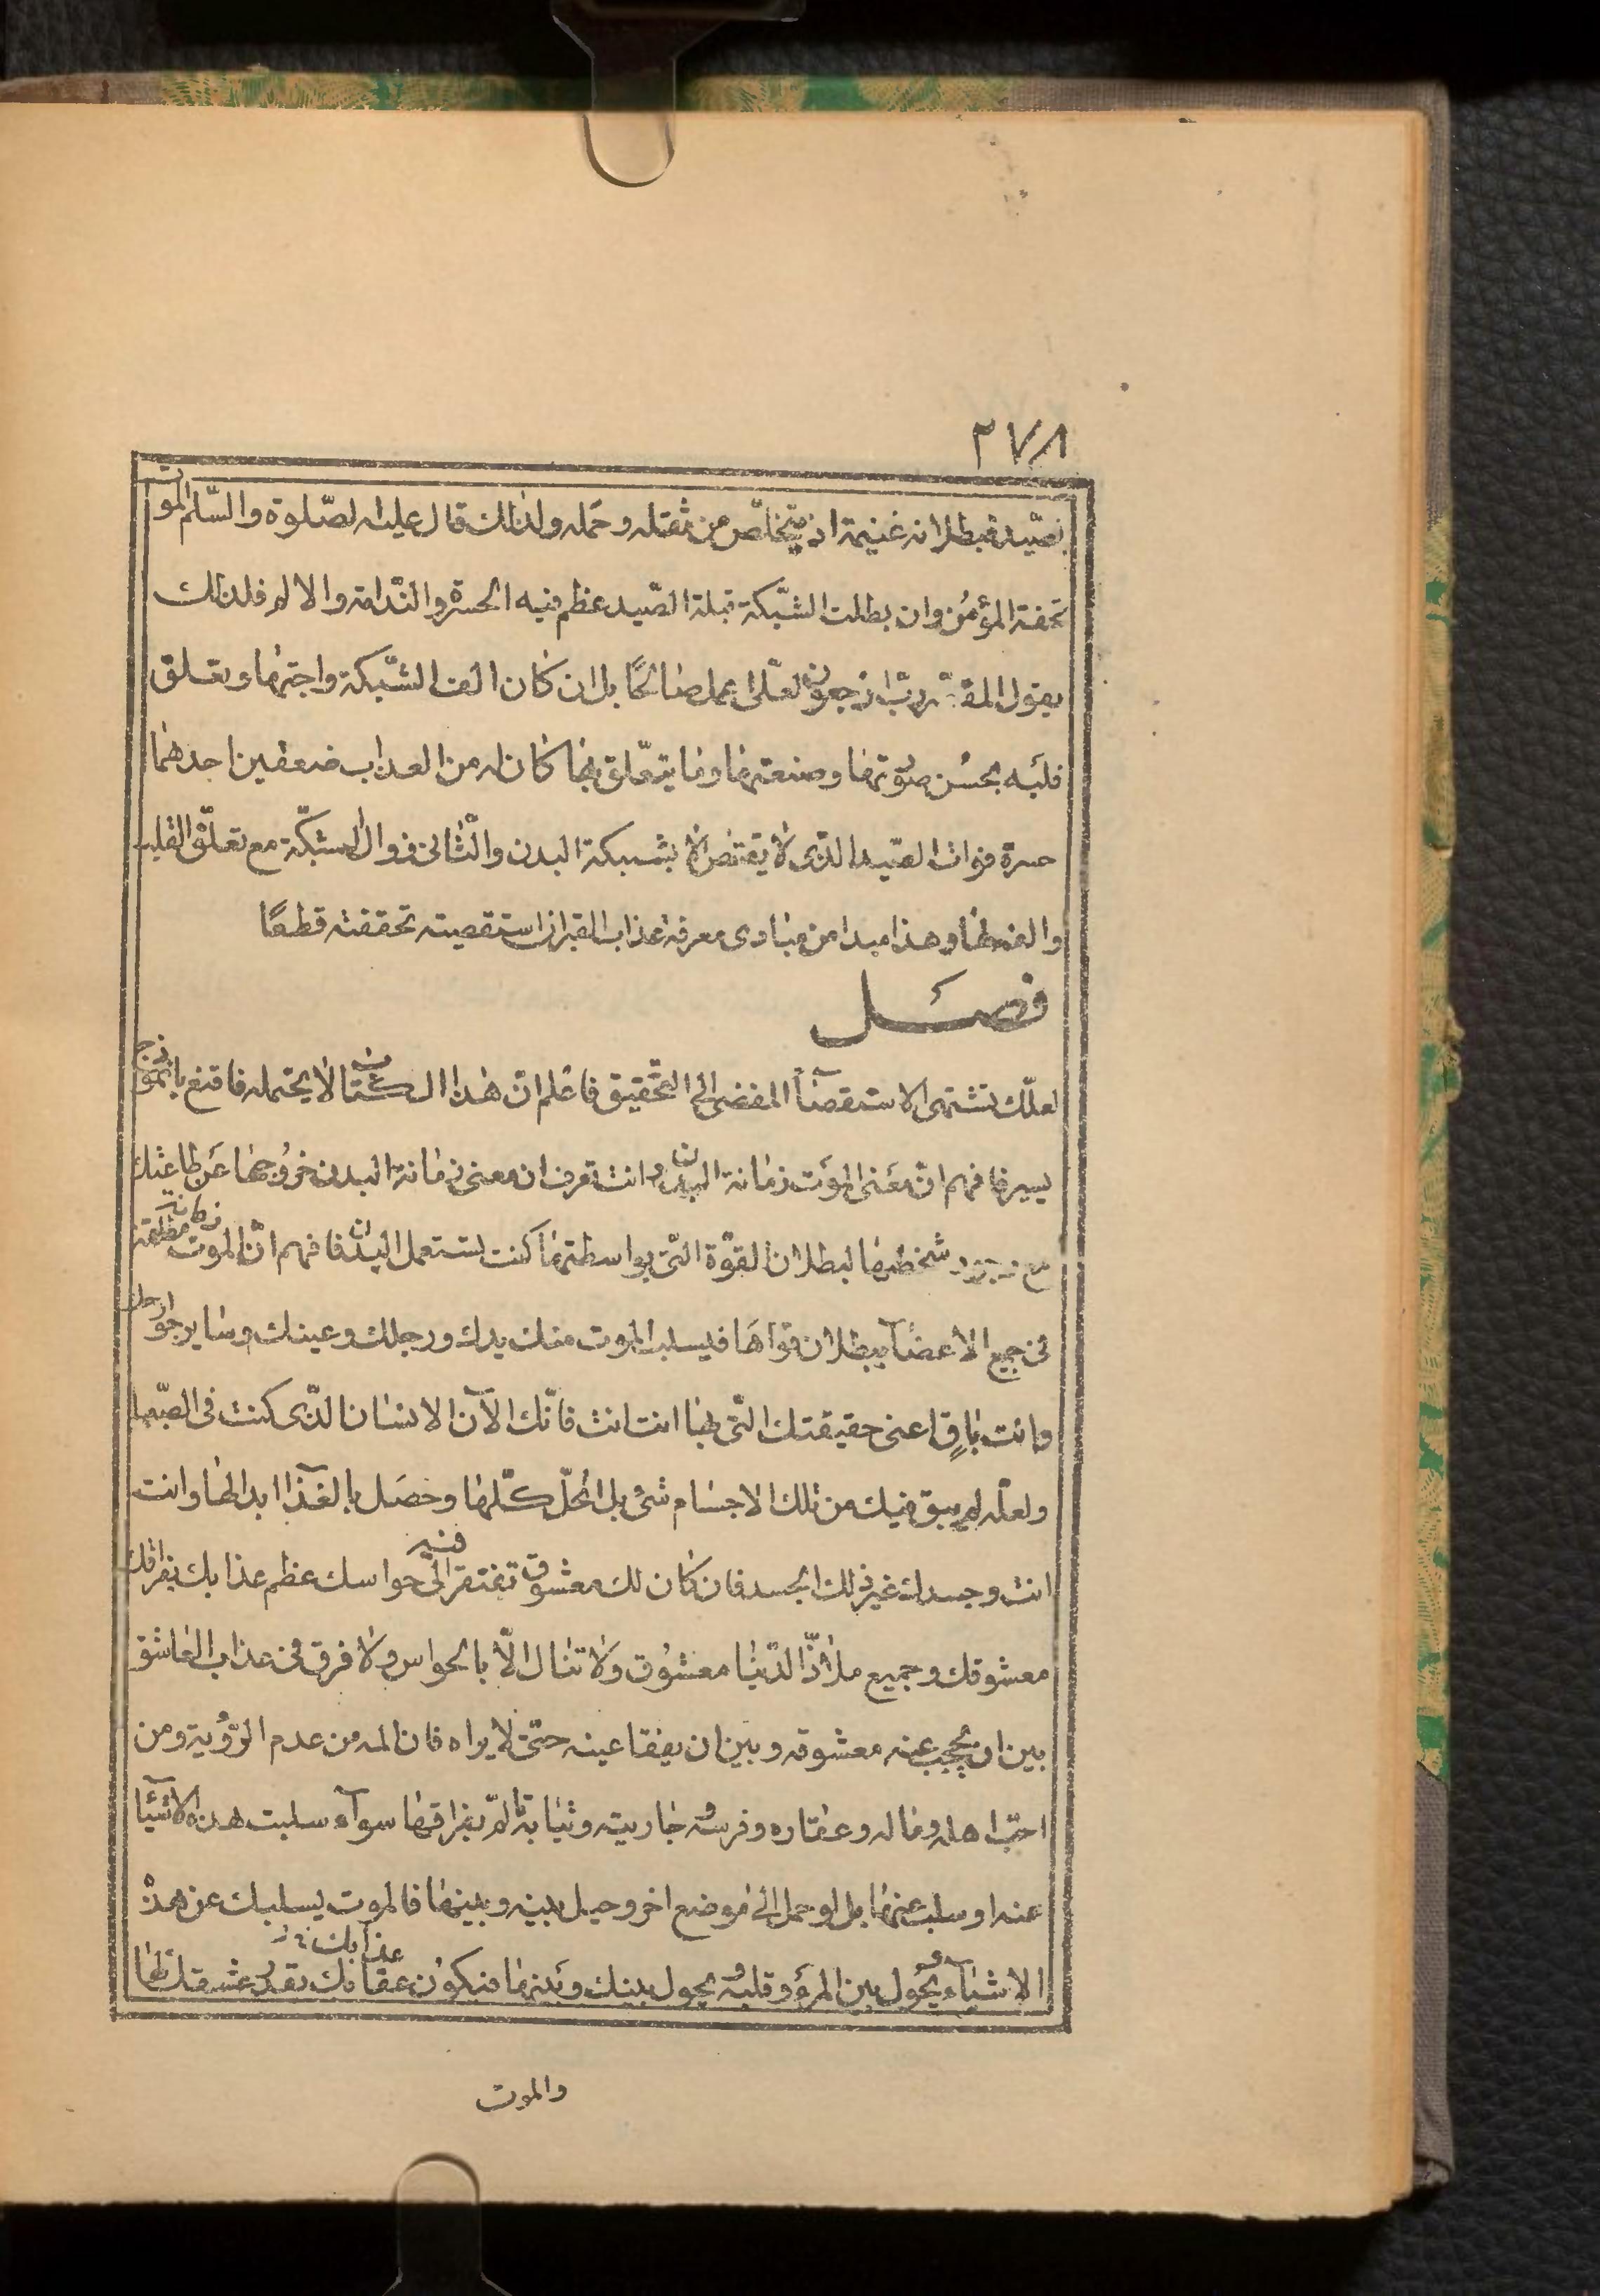 ٢٧٨
الصّيد فبطلانه غنيمة اذ يتخلّص من ثقله وحمله ولذلك قال عليه الصّلوة والسّلم الموت
تحفة المؤمن وان بطلت الشبّكة قبلة الصّيد عظم فيه الحسرة والنّدامة والالم فلذلك
يقول المقصّر ربّ ارجعون لعلّى اعمل صالحًا بل ان كان الف الشّبكة واحبّها وتعلق
قلبه بحسن صورتها وصنعتها وما يتعّلق بها كان له من العذاب ضعفين احدهما
حسرة فوات الصّيد الذّى لا يقتنص الا بشبكة البدن والثّانى زوال الشبكّة مع تعلّق القلب
والفه لها وهذا مبدا من مبادى معرفة عذاب القبر ان استقصيته تحققته قطعًا
فصل
لعلّك تشتهى الاستقصآء المفضى الى التحّقيق فاعلم انّ هذا الكتاب لا يحتمله فاقنع بانموذج
يسير فافهم انّ معنى الموت زمانة البدن وانت تعرف ان معنى زمانة اليد خروجها عن طاعتك
مع وجود شخصها لبطلان القوّة التّى بواسطتها كنت تستعمل اليد فافهم انّ الموت زمانة مطلقة
فى جميع الاعضآء ببطلان قواها فيسلب الموت منك يدك ورجلك وعينك وساير جوارحك
وانت باقٍ اعنى حقيقتك التّى بها انت انت فانّك الآن الانسان الذّى كنت فى الصّبا
ولعلّه لم يبق فيك من تلك الاجسام شئ بل انحلّ كلّها وحصل بالغذآء ابدالها وانت
انت وجسدك غير ذلك الجسد فان كان لك معشوق تفتقر فيه الى حواسك عظم عذابك بفراقك
معشوقك وجميع ملاذّ الدّنيا معشوق ولا تنال الّا بالحواس ولا فرق فى عذاب العاشق
بين ان يحجب عنه معشوقه وبين ان يفقا عينه حتّى لا يراه فان المه من عدم الرّؤية ومن
احبّ اهله وماله وعقاره وفرسه وجاريته وثيابه تالّم بفراقها سوآء سلبت هذه الاشيآء
عنه او سلب عنها بل لو حمل الى موضع اخر وحيل بينه وبينها فالموت يسلبك عن هذه
الاشيآء ويحول بين المرء وقلبه ويحول بينك وبينها فيكون عقابك عذابك بقدر عشقك لها
والموت